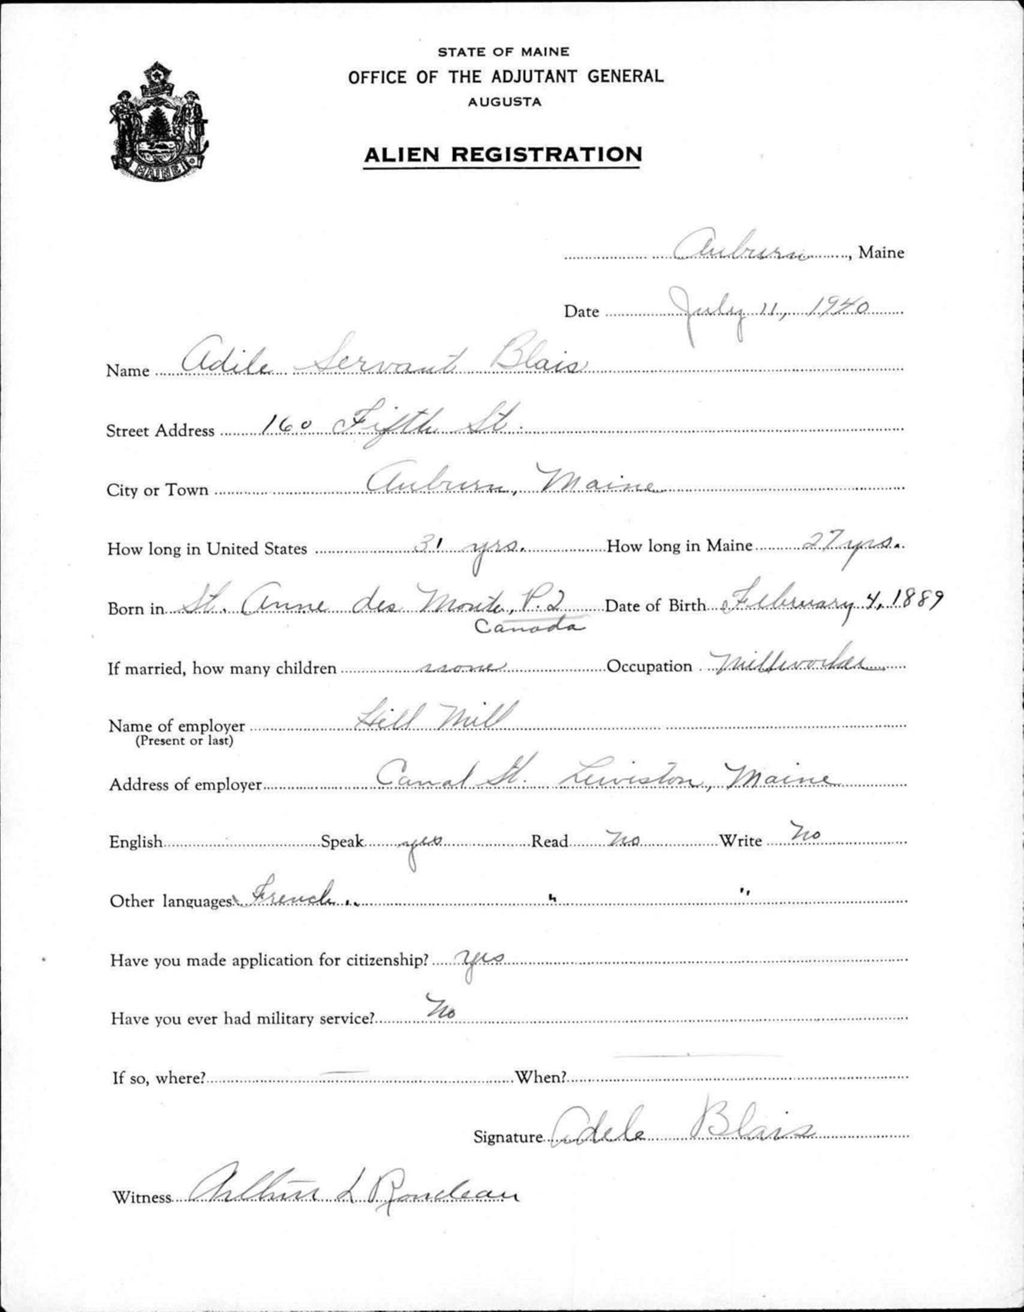 STATE OF MAINE
OFFICE OF THE ADJUTANT GENERAL
AUGUSTA
ALIEN REGISTRATION
MAINE
Auburn, Maine
Date July 11, 1940
Name Adile Servant Blais
Street Address 160 Fifth St.
City or Town Auburn, Maine
How long in United States 31 yrs. How long in Maine 27 yrs.
Born in St. Anne des Monts, P.Q Date of Birth February 4, 1889
Canada
If married, how many children none Occupation Millworker
Name of employer Hill Mill
(Present or last)
Address of employer Canal St. Lewiston, Maine
English Speak yes Read No Write No
Other languages French " " "
Have you made application for citizenship? Yes
Have you ever had military service? No
If so, where? — When? —
Signature Adele Blais
Witness Arthur L Rondeau